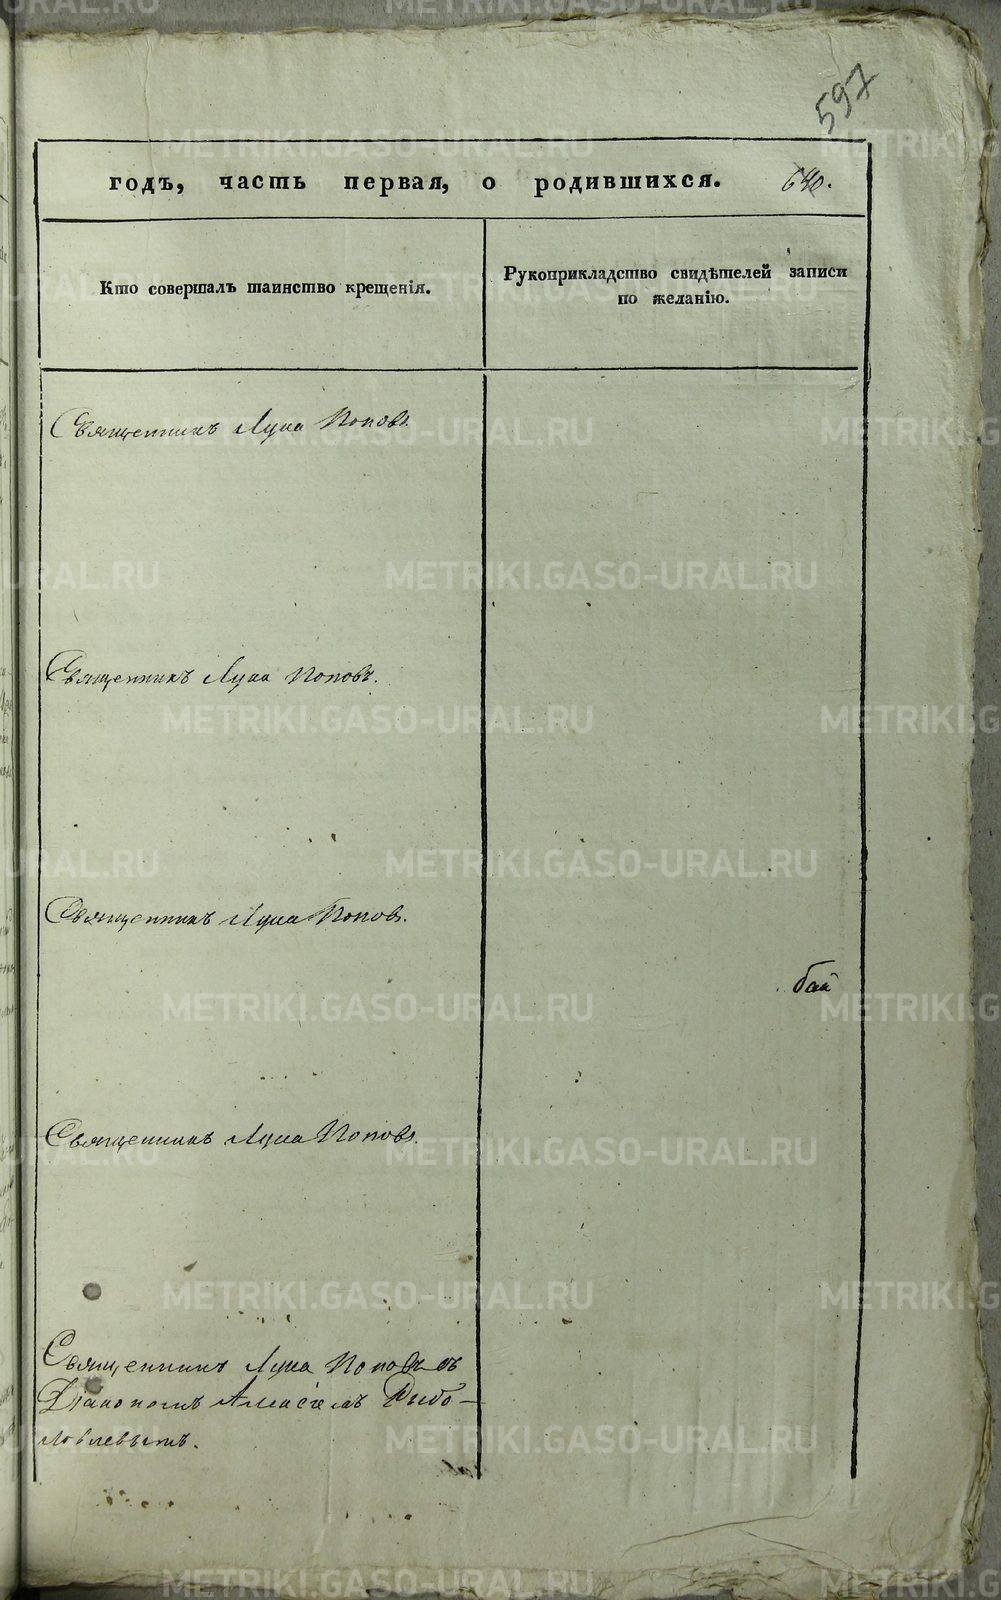 597
годъ, часть первая, о родившихся. 640.
Кто совершалъ таинство крещенія.
Рукоприкладство свидѣтелей записи
по желанію.
Священникъ Лука Поповъ.
Священникъ Лука Поповъ.
Священникъ Лука Поповъ.
бай
Священникъ Лука Поповъ.
Священникъ Лука Поповъ съ
Діакономъ Рыбо-
ловлевымъ.
METRIKI.GASO-URAL.RU